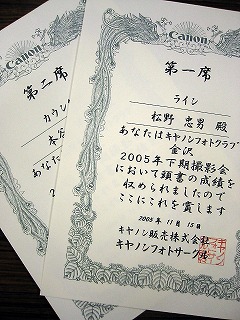 Canon
第一席
ライン
松野 忠男 殿
あなたはキヤノンフォトクラブ
金沢
2005年下期撮影会
において頭書の成績を
収められましたので
ここにこれを賞します
2005年 11月 15日
キヤノン販売株式会社
キヤノンフォトサークル
Canon
第二席
カウン
あなた